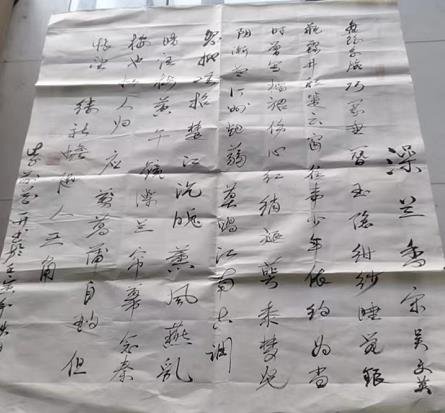 澡兰香 宋 吴文英
盘丝系腕巧篆垂簪玉隐绀纱睡觉银
瓶露井彩箑云窗往事少年依约为当
时曾写榴裙伤心红绡褪萼黍梦光
阴渐老汀洲烟蒻莫唱江南古调
怨抑难招楚江沉魄薰风燕乳
暗雨梅黄午镜澡兰帘幕念秦
楼也拟人归应剪菖蒲自酌但
怅望一缕新蟾随人天角